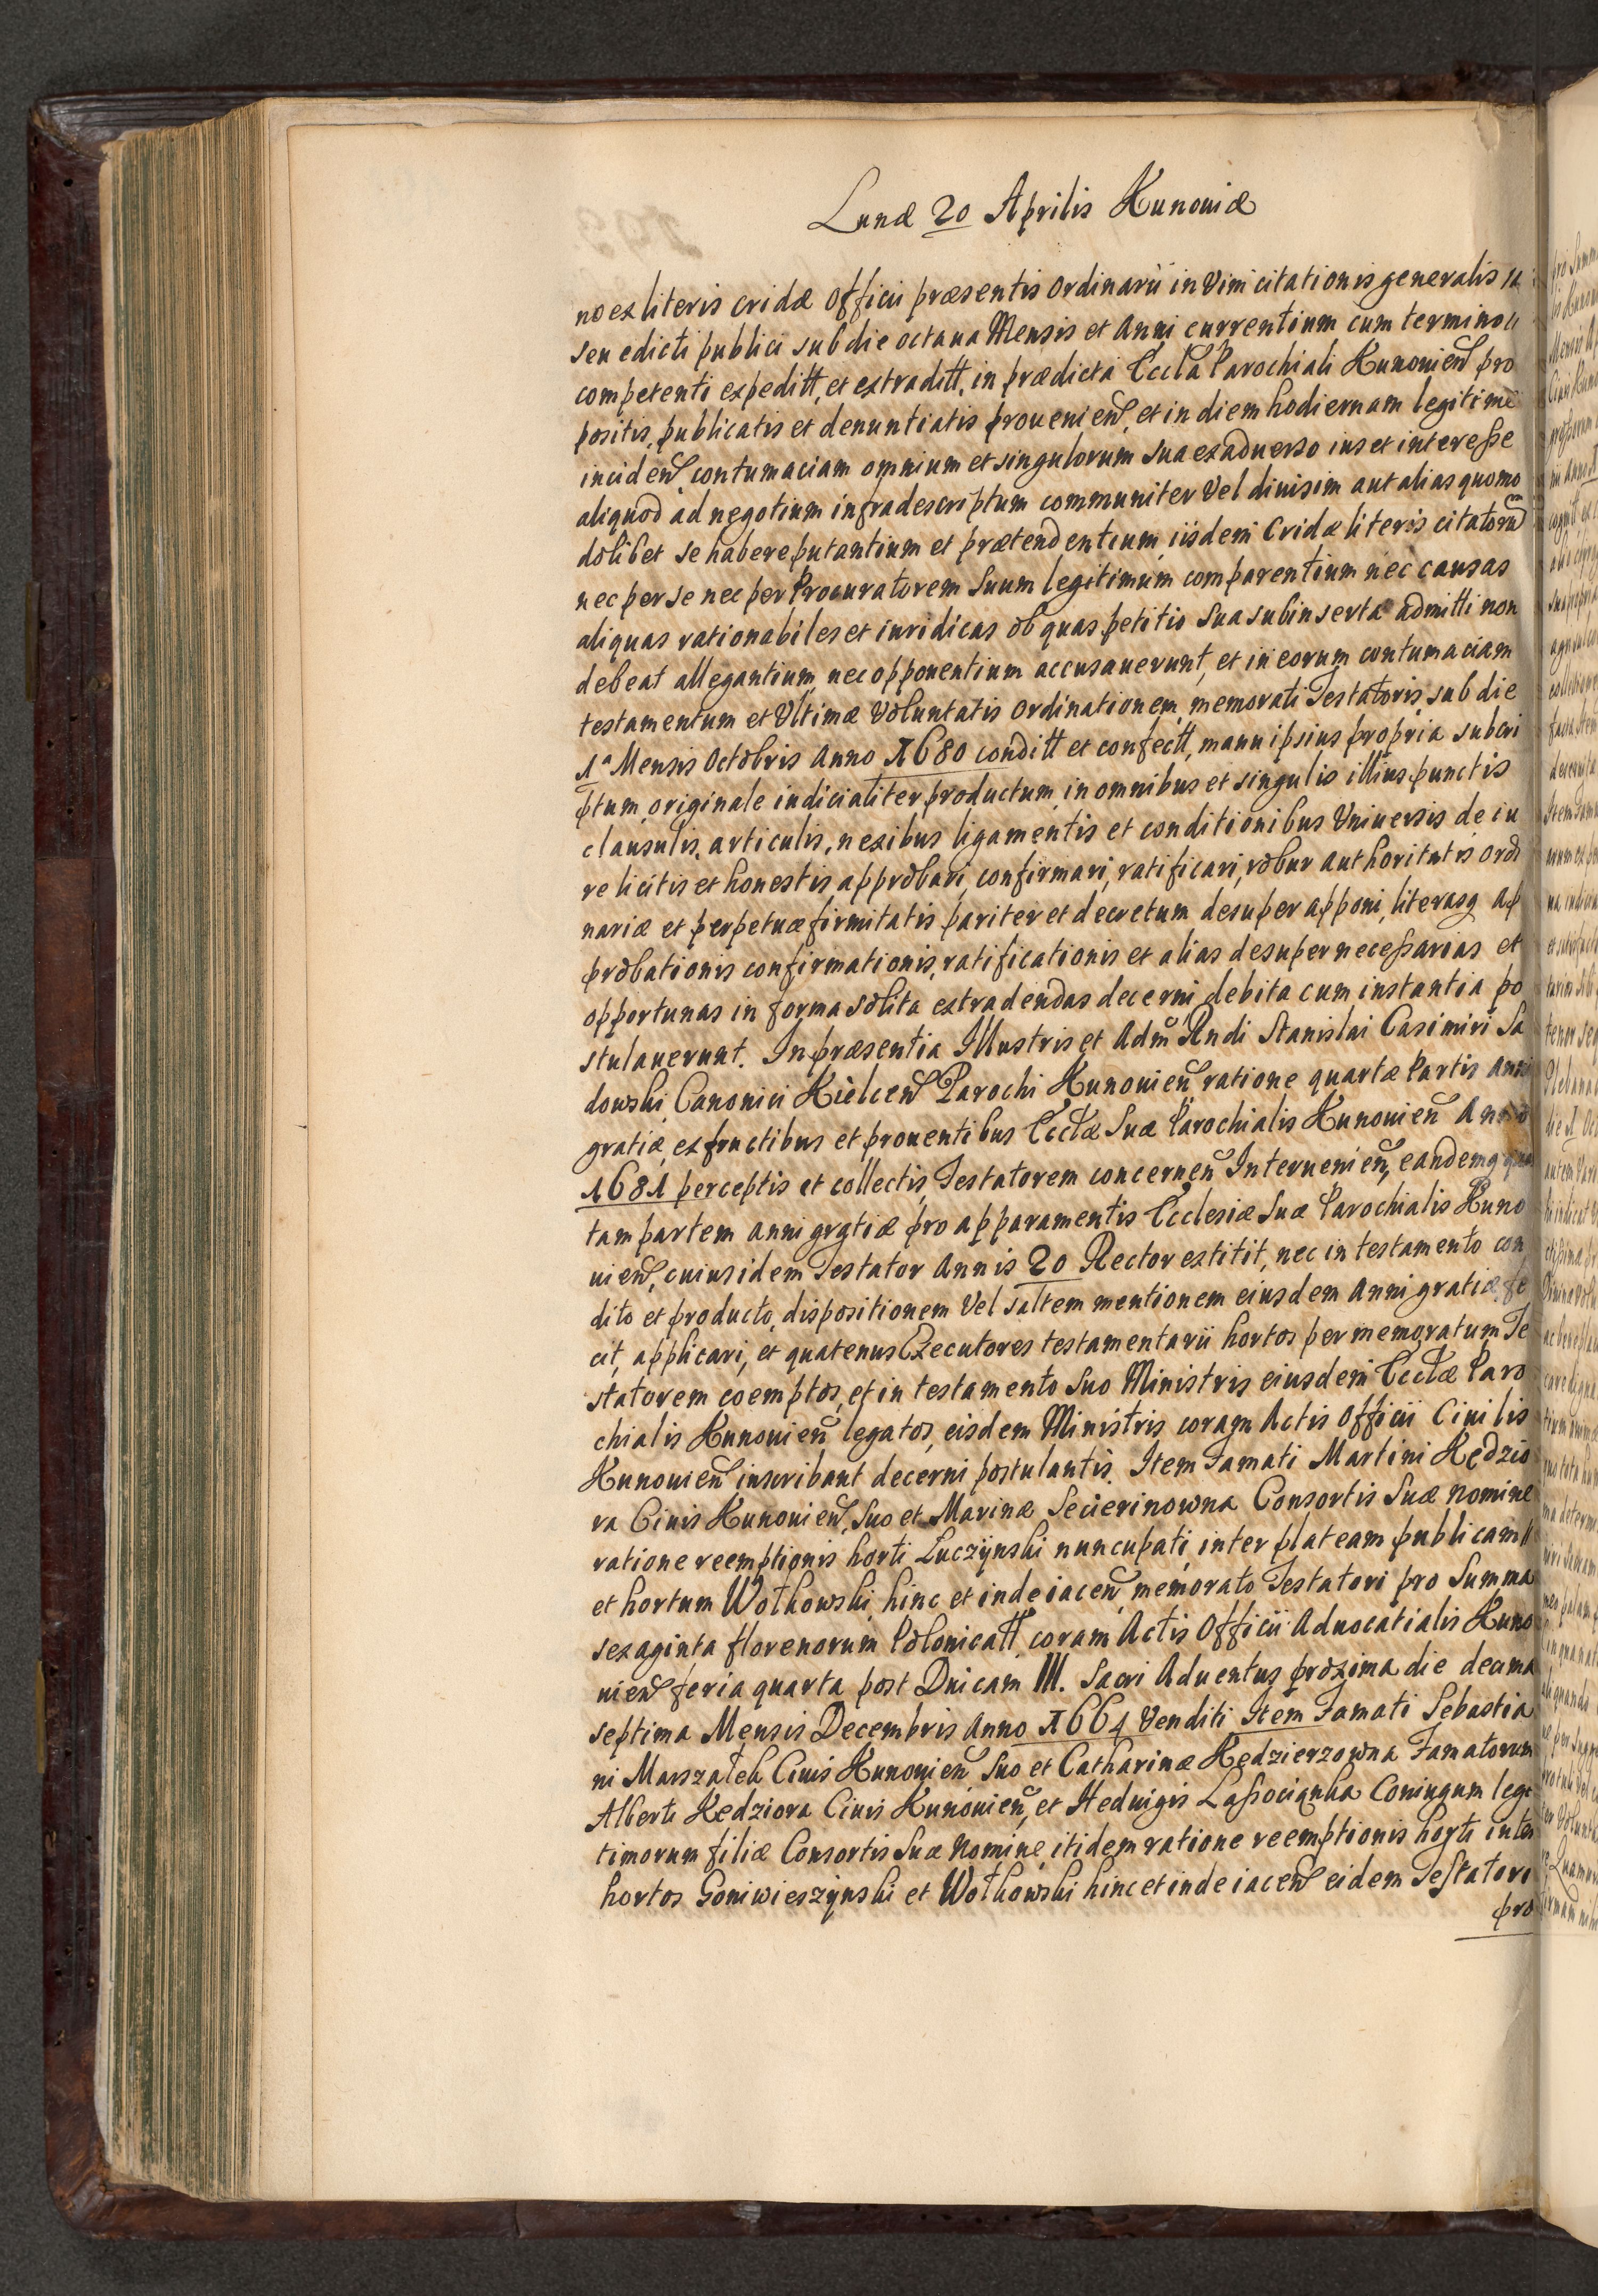 Lunæ 20 Aprilis Kunoviæ
no ex literis cridæ Officii præsentis Ordinarii in Vim citationis generalis
seu edicti publici sub die octava Mensis et Anni currentium cum termino
competenti expeditt, et extraditt, in prædicta Eccla Parochiali Kunovien pro
positis, publicatis et denuntiatis provenien, et in diem hodiernam legitime
inciden, contumaciam omnium et singulorum sua ex adverso ius et interesse
aliquod ad negotium infradescriptum communiter Vel divisim aut alias quomo
dolibet se habere putantium et prætendentium iisdem Cridæ literis citatorum
nec per se nec per Procuratorem Suum legitimum comparentium nec causas
aliquas rationabiles et iuridicas ob quas petitio Sua subinserta admitti non
debeat allegantium, nec opponentium accusaverunt, et in eorum contumaciam
testamentum et Ultimæ Voluntatis Ordinationem memorati Testatoris sub die
1ª Mensis Octobris Anno 1680 conditt et confectt, manu ipsius propria subcri
ptum, originale iudicialiter productum, in omnibus et singulis illius punctis
clausulis, articulis, nexibus ligamentis et conditionibus Universis de iu
re licitis et honestis approbari, confirmari, ratificari, robur authoritatis ordi
nariæ et perpetuæ firmitatis pariter et decretum desuper apponi, literasq ap
probationis confirmationis, ratificationis et alias desuper necessarias et
opportunas in forma solita extradendas decerni debita cum instantia po
stulaverunt. In præsentia Illustris et Adm Rndi Stanislai Casimiri Sa
dowski Canonici Kielcen Parochi Kunovien ratione quartæ Partis anni
gratiæ, ex fructibus et proventibus Ecclæ Suæ Parochialis Kunovien Anno
1681 perceptis et collectis, Testatorem concernen Intervenien, eandemq quar
tam partem anni gratiæ pro apparamentis Ecclesiæ Suæ Parochialis Kuno
vien, cuius idem Testator Annis 20 Rector extitit, nec in testamento con
dito et producto, dispositionem Vel saltem mentionem eiusdem Anni gratiæ fe
cit, applicari, et quatenus Executores testamentarii hortos per memoratum Te
statorem coemptos, et in testamento suo Ministris eiusdem Ecclæ Paro
chialis Kunovien legatos, eisdem Ministris coram Actis Officii Civilis
Kunovien inscribant decerni postulantis. Item Famati Martini Kędzio
ra Civis Kunovien, Suo et Marinæ Secierinowna Consortis Suæ nomine
ratione reemptionis horti Łuczynski nuncupati, inter plateam publicam
et hortum Wołkowski, hinc et inde iacen, memorato Testatori pro Summa
sexaginta florenorum Polonicatt, coram Actis Officii Advocatialis Kuno
vien feria quarta post Dnicam III. Sacri Adventus proxima die decima
septima Mensis Decembris Anno 1664 Venditi Item Famati Sebastia
ni Marszałek Civis Kunovien Suo et Catharinæ Kędzierzowna Famatorum
Alberti Kedziora Civis Kunovien, et Hedvigis Lassocianka Coniugum legi
timorum filiæ Consortis Suæ Nomine, itidem ratione reemptionis horti inter
hortos Goniwieszynski et Wołkowski hinc et inde iacen eidem Testatori
pro